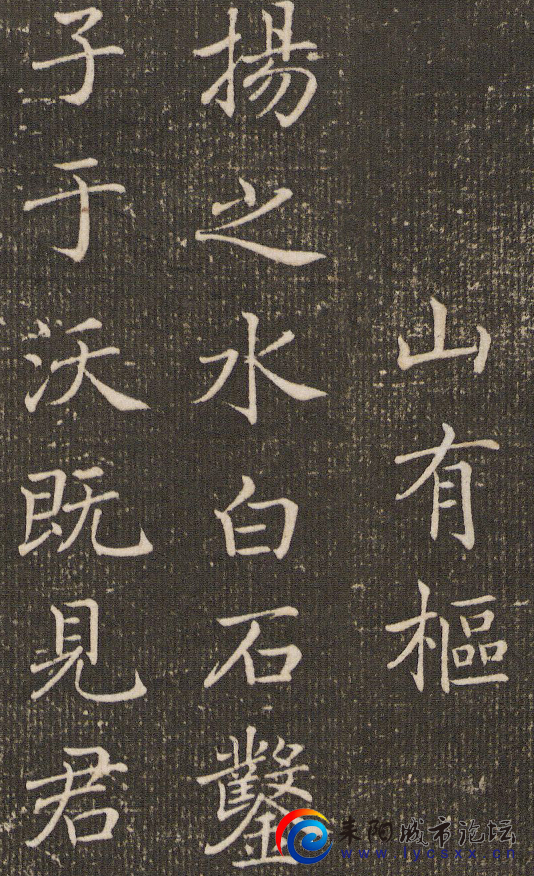 山有樞
揚之水白石鑿
子于沃既見君
耒阳城市论坛
www.lycsxx.cn